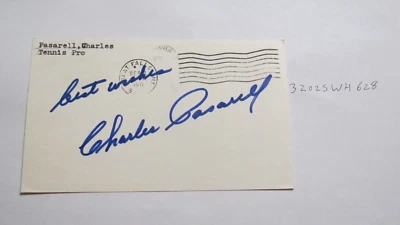 Pasarell, Charles
Tennis Pro
best wishes
Charles Pasarell
32025WH628